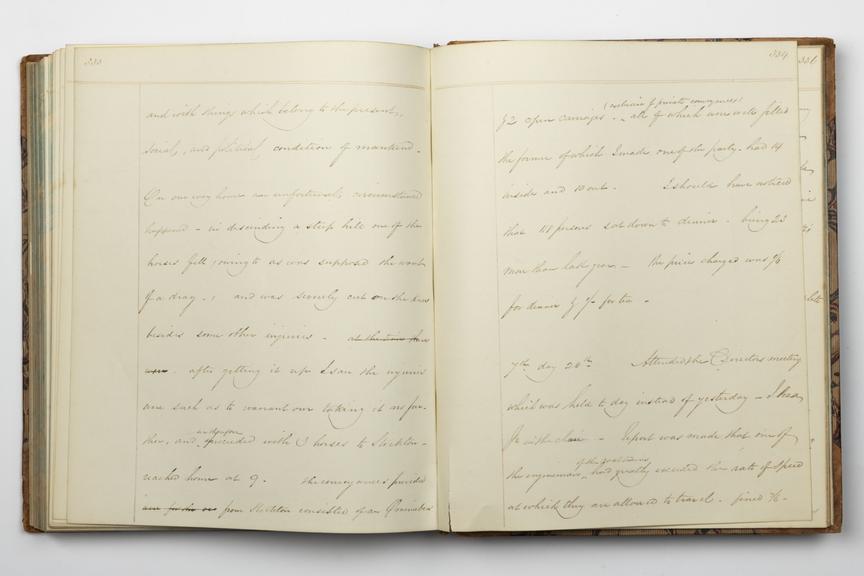 333
and with things which belong to the present,
social, and political, condition of mankind -
On our way home an unfortunate circumstance
happened - in descending a steep hill one of the
horses fell, owing to as was supposed the want
of a drag -, and was severely cut on the knees
besides some other injuries - at the time there
were. after getting it up I saw the injuries
were such as to warrant our taking it no fur-
ther, and proceeded with 3 horses to Stockton -
reached home at 9. the conveyances provided
from Stockton consisted of an Omnibus
334
(exclusive of private conveyances)
& 2 open carriages - all of which were well filled
the former of which I made one of the party - had 14
insides and 10 out. I should have noticed
that 118 persons sat down to dinner - being 23
more than last year - the price charged was
for dinner & for tea -
7th day 26th Attended the Directors meeting
which was held to day instead of yesterday -
in the chair - Report was made that one of
of the
the enginemen had greatly exceeded the rate of speed
at which they are allowed to travel - fined
336